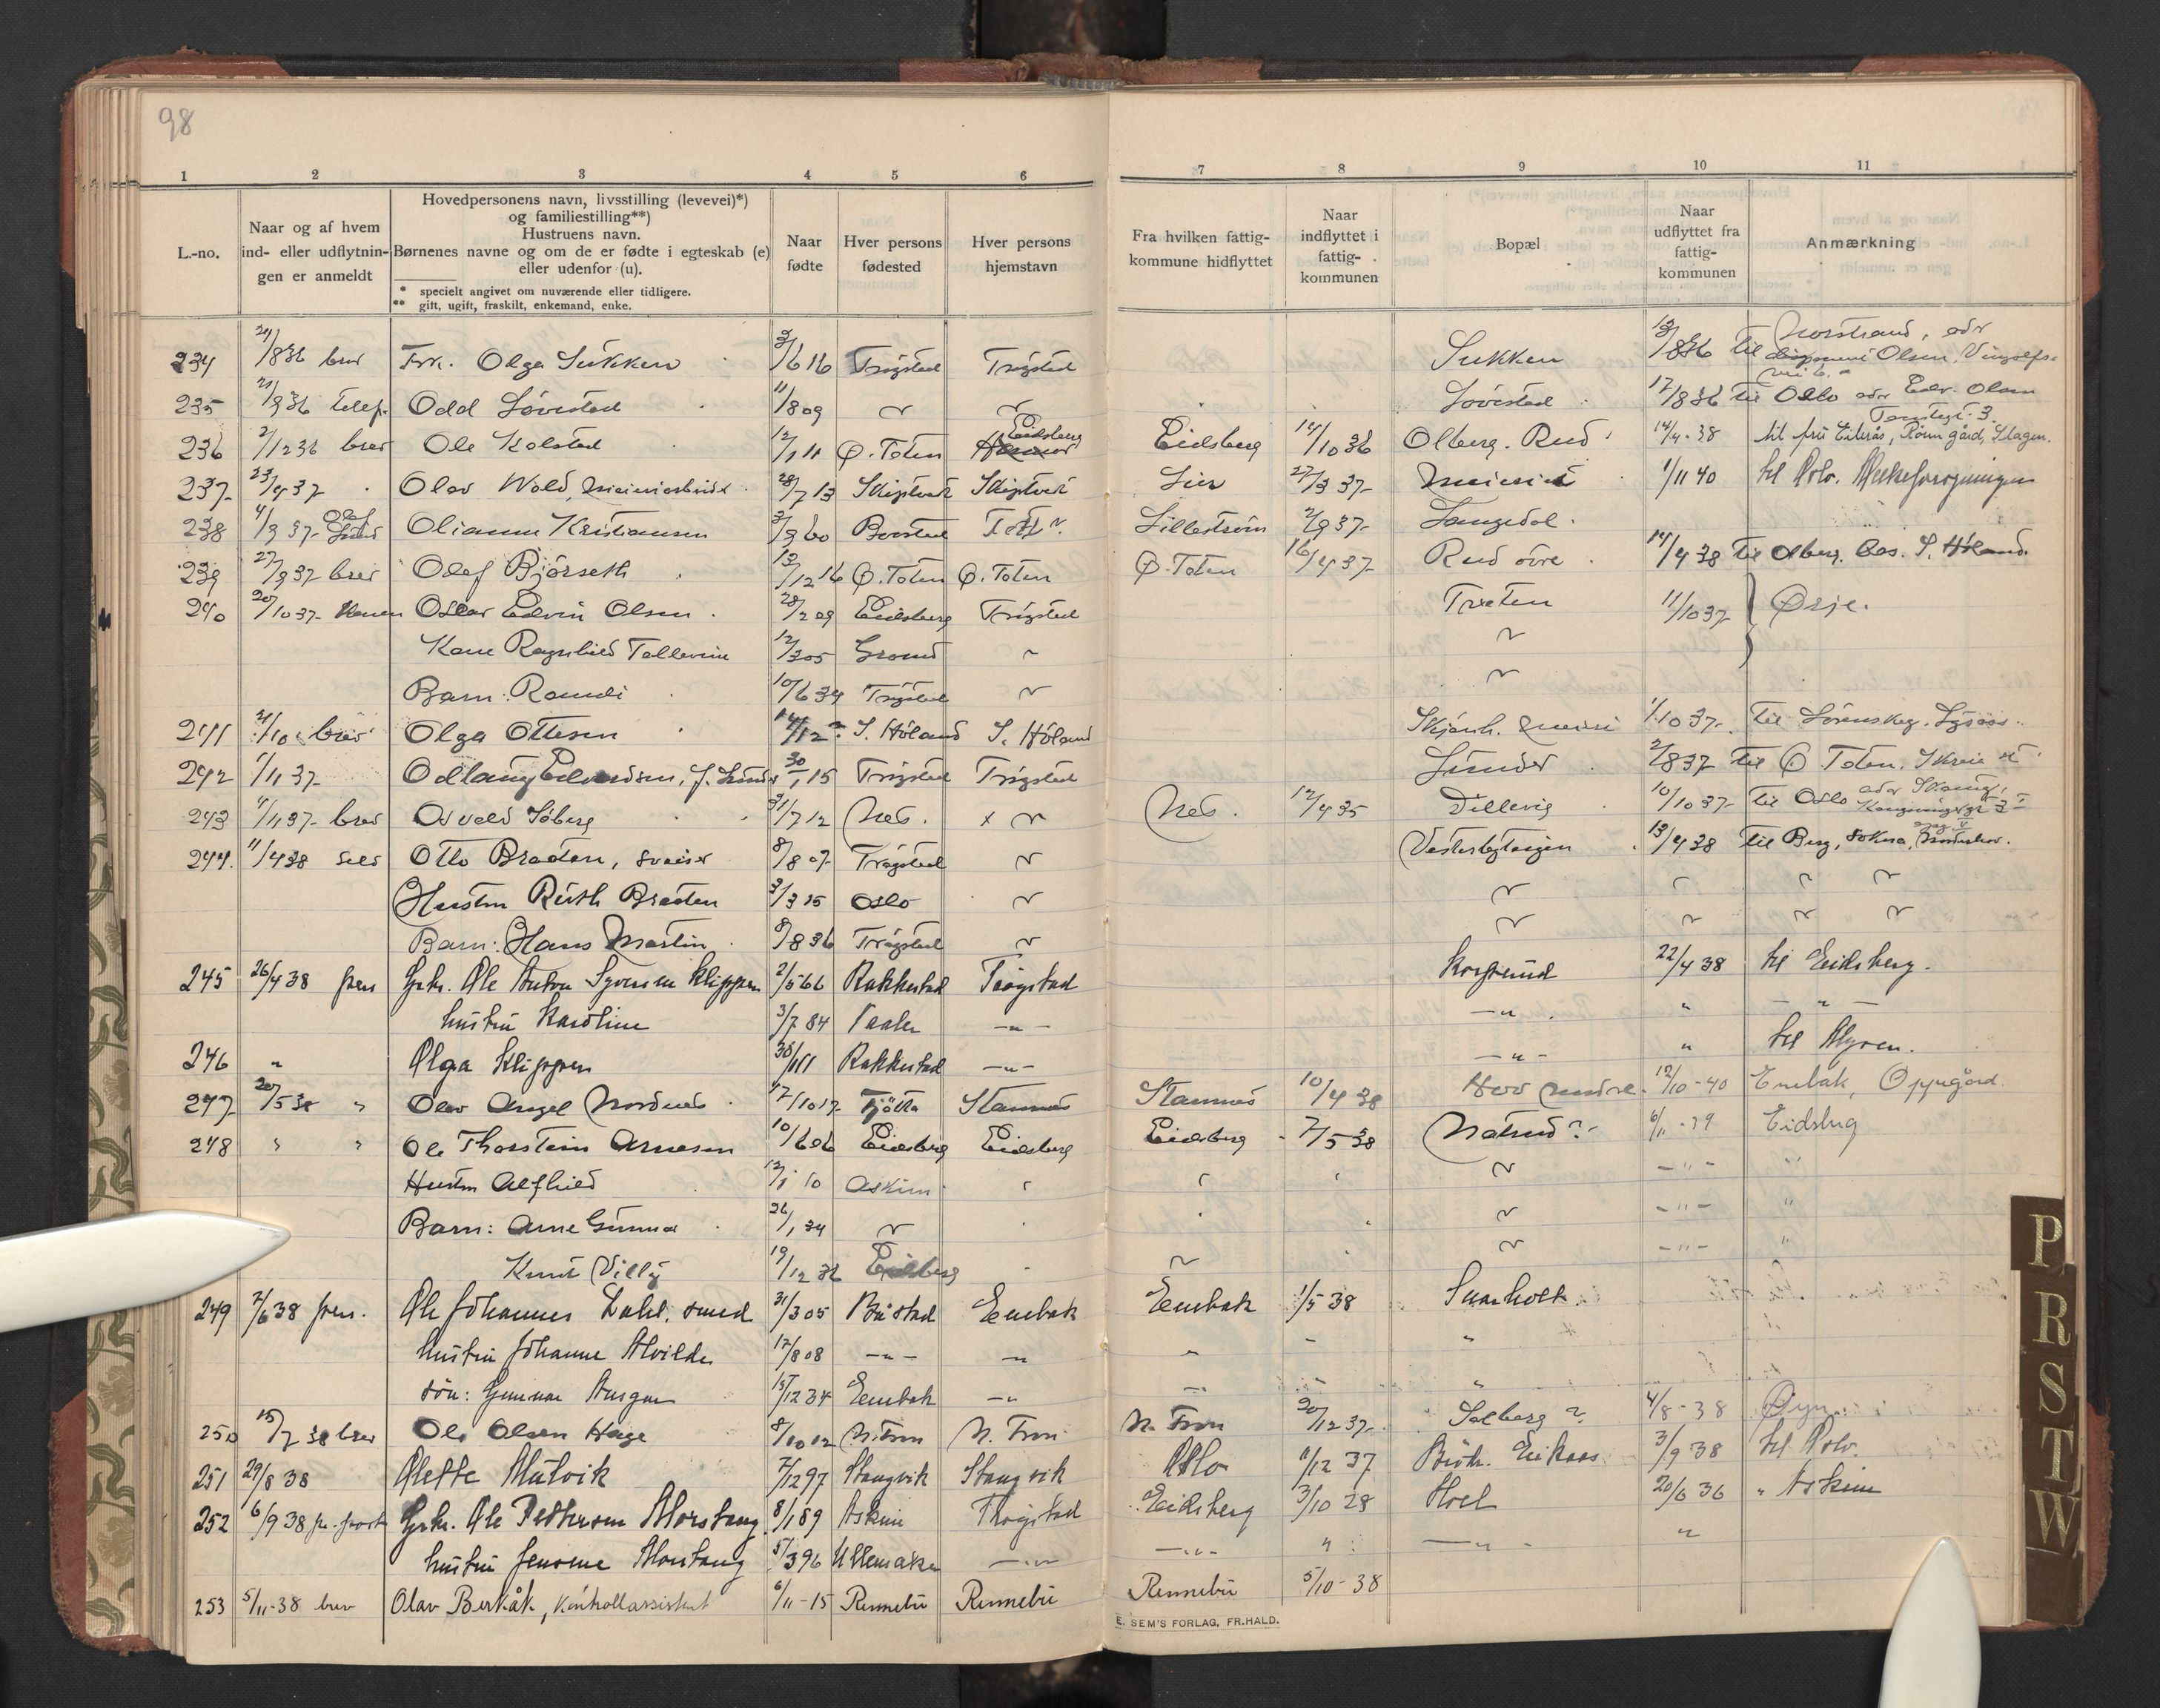 98
1 2 3 4 5 6 7 8 9 10 11
L.-no.
Naar og af hvem ind- eller udflytningen er anmeldt
Hovedpersonens navn, livsstilling (levevei)*) og familiestilling**)
Hustruens navn.
Børnenes navne og om de er fødte i egteskab (e) eller udenfor (u).
* specielt angivet om nuværende eller tidligere.
** gift, ugift, fraskilt, enkemand, enke.
Naar fødte
Hver persons fødested
Hver persons hjemstavn
Fra hvilken fattigkommune hidflyttet
Naar indflyttet i fattigkommunen
Bopæl
Naar udflyttet fra fattigkommunen
Anmærkning
234 brev Frk. Olga Sukken 3/6 16 Trøgstad Trøgstad Sukken 13/8 36 til Norstrand, adr Olsen,
235 21/9 36 telef. Odd Lövestad 11/8 09 ~ ~ Lövestad 17/8 36 til Oslo adr Edv. Olsen
236 2/12 36 brev Ole Kolstad 12/1 11 Ø. Toten Eidsberg Eidsberg 14/10 36 Olberg. Rud 14/4-38 til frü Eikrås, Römgård, Slagen.
237 23/4 37 Olav Wold, 28/7 13 Skiptvet Skiptvet Lier 27/3 37 Meieriet 1/11 40 til Oslo.
238 4/9 37 Olianna Kristiansen 3/9 60 Båstad Lillestrøm 2/9 37 Langedal
239 27/9 37 brev Olaf Bjørseth 13/12 16 Ø. Toten Ø. Toten Ø. Toten 16/4 37 Rud övre 14/4 38 til Olberg. S. Höland
240 20/10 37 Oskar Edvin Olsen 28/2 09 Eidsberg Trøgstad Træten 11/10 37 Ørje.
Kone Ragnhild Tallevine 12/3 05 Grønd ~ ~
Barn: Randi 10/6 34 Trøgstad ~ ~
241 /10 brev Olga Ottesen 14/12 S. Höland S. Höland Skjønh. 1/10 37 til Lørenskog.
242 1/11 37 Odlaug Edvardsen, f. Lunder 30/1 15 Trøgstad Trøgstad Lunder 2/8 37 til Ø. Toten, Skreia st
243 4/11 37 brev Osvald Söberg 31/7 12 Nes. x ~ Nes. 12/4 35 Dillevig 10/10 37 til Oslo
244. 11/4 38 selv Otto Braaten, sveiser 8/8 07 Trøgstad ~ Vesterbytangen 13/4 38 til Berg, Sokna, Norderhov.
Hustru Ruth Braaten 3/3 15 Oslo ~ ~ ~ ~ ~
Barn: Hans Martin 8/8 36 Trøgstad ~ ~ ~ ~ ~
245 26/4 38 pers Grbr. Ole Anton Syversen Klippen 2/5 66 Rakkestad Trøgstad Korsrud 22/4 38 til Eidsberg.
hustru Karoline 3/7 84 Vaaler —"— —"— " —"—
246 " Olga Klippen 30/1 11 Rakkestad —"— —"— " til Mysen.
247 20/5 38 " Olav Angel Nordnes 17/10 17 Tjötta Stamnes Stamnes 10/4 38 Hov nedre 12/10-40 Enebak, Oppegård
248 " " Ole Thorstein Arnesen 10/6 06 Eidsberg Eidsberg Eidsberg 7/5 38 6/11-39 Eidsberg
Hustru Alfhild 12/1 10 Askim " " " ~ —"— "
Barn: Arne Gunnar 26/1 34 ~ " " " ~ —"— "
Knut Villy 19/12 36 Eidsberg ~ " ~ —"— "
249 7/6 38 pers. Ole Johannes Dahl, smed 31/3 05 Båstad Enebak Enebak 1/5 38 Svarholt
hustru Johanne Alvilde 17/8 08 —"— —"— " " "
sön: Gunnar Asgar 15/12 34 Enebak —"— " " "
250 15/7 38 brev Ole Olsen Hage 8/10 12 N. Fron N. Fron N. Fron 20/12 37 Solberg 4/8-38
251 29/8 38 Olette Mulvik 7/12 97 Stangvik Stangvik Oslo 11/12 37 Böth. Eikaas 3/9 38 til Oslo.
252 6/9 38 pr. post Grbr. Ole Pettersen Morstang 8/1 89 Askim Trøgstad Eidsberg 3/10 28 Hoel 20/6 36 " Askim
hustru Jensine Morstang 5/3 96 Ullensaker —"— —"— " —"— "
253 5/11-38 brev Olav Berkåk, Kontrollassistent 6/11-15 Rennebü Rennebü Rennebü 5/10-38
E. SEM'S FORLAG, FR.HALD.
P
R
S
T
W